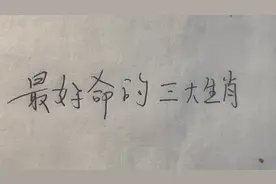 最好命的三大生肖